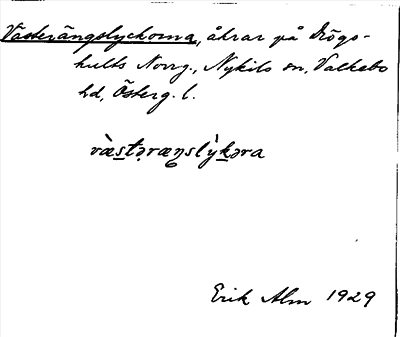 Västerängslyckorna, åkrar på Drögs-
hults Norrg., Nykils sn, Valkebo
hd, Österg. l.
væ̀stəræŋslỳkəra
Erik Alm 1929